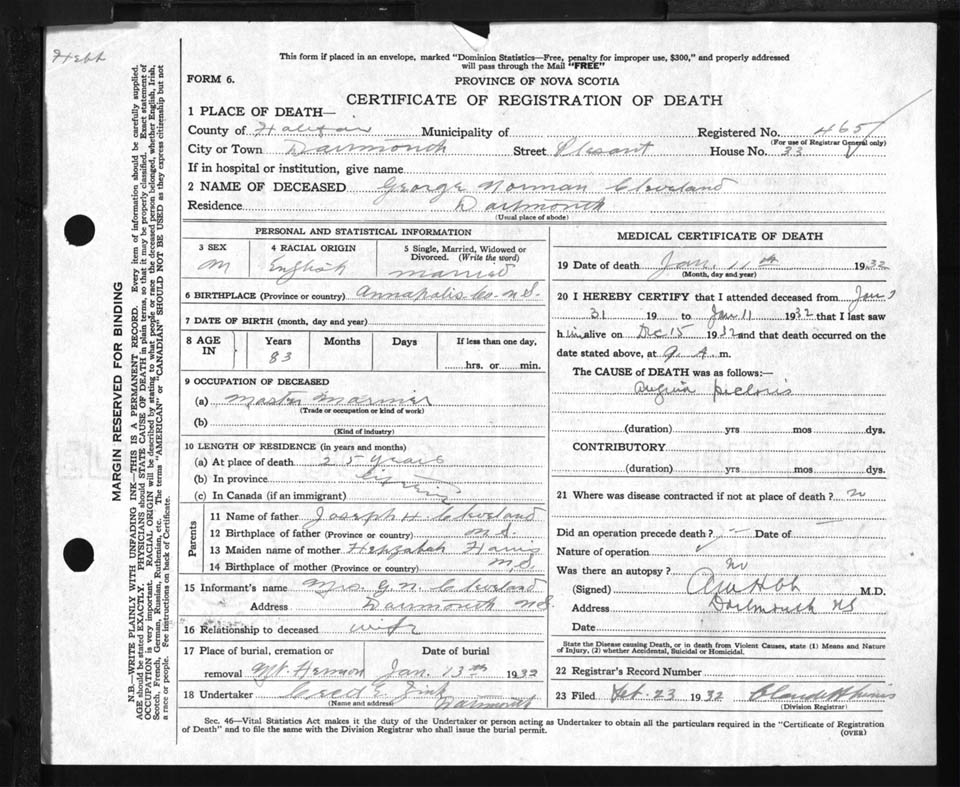 Hebb
This form if placed in an envelope, marked "Dominion Statistics—Free, penalty for improper use, $300," and properly addressed
will pass through the Mail "FREE"
FORM 6.
PROVINCE OF NOVA SCOTIA
CERTIFICATE OF REGISTRATION OF DEATH
1 PLACE OF DEATH—
County of Halifax Municipality of Registered No. 465
(For use of Registrar General only)
City or Town Dartmouth Street Plesant House No. 33
If in hospital or institution, give name
2 NAME OF DECEASED George Norman Cleveland
Residence Dartmouth
(Usual place of abode)
PERSONAL AND STATISTICAL INFORMATION
3 SEX 4 RACIAL ORIGIN 5 Single, Married, Widowed or
Divorced. (Write the word)
M English married
6 BIRTHPLACE (Province or country) Annapolis Co. N.S.
7 DATE OF BIRTH (month, day and year)
8 AGE IN Years Months Days If less than one day,
83 hrs. or min.
9 OCCUPATION OF DECEASED
(a) Master Mariner
(Trade or occupation or kind of work)
(b)
(Kind of industry)
10 LENGTH OF RESIDENCE (in years and months)
(a) At place of death 25 years
(b) In province lifetime
(c) In Canada (if an immigrant)
Parents
11 Name of father Joseph H Cleveland
12 Birthplace of father (Province or country) N.S.
13 Maiden name of mother Hepzabah Harris
14 Birthplace of mother (Province or country) N.S.
15 Informant's name Mrs. G. N. Cleveland
Address Dartmouth N.S.
16 Relationship to deceased wife
17 Place of burial, cremation or Date of burial
removal Mt. Hermon Jan. 13th 1932
18 Undertaker Cecil E. Zink
(Name and address) Dartmouth
MEDICAL CERTIFICATE OF DEATH
19 Date of death Jan. 11th 1932
(Month, day and year)
20 I HEREBY CERTIFY that I attended deceased from Jan
31 19 to Jan 11 1932 that I last saw
him alive on Dec 15 1932 and that death occurred on the
date stated above, at 9 A. m.
The CAUSE of DEATH was as follows:—
Angina pectoris
(duration) yrs mos dys.
CONTRIBUTORY
(duration) yrs mos dys.
21 Where was disease contracted if not at place of death? no
Did an operation precede death? Date of
Nature of operation
Was there an autopsy? no
(Signed) M.D.
Address Dartmouth NS
Date
State the Disease causing Death, or in death from Violent Causes, state (1) Means and Nature
of Injury, (2) whether Accidental, Suicidal or Homicidal.
22 Registrar's Record Number
23 Filed Feb. 23 1932
(Division Registrar)
Sec. 46—Vital Statistics Act makes it the duty of the Undertaker or person acting as Undertaker to obtain all the particulars required in the "Certificate of Registration
of Death" and to file the same with the Division Registrar who shall issue the burial permit.
(OVER)
MARGIN RESERVED FOR BINDING
N.B.—WRITE PLAINLY WITH UNFADING INK—THIS IS A PERMANENT RECORD. Every item of information should be carefully supplied.
AGE should be stated EXACTLY. PHYSICIANS should STATE CAUSE OF DEATH in plain terms, so that it may be properly classified. Exact statement of
OCCUPATION is very important. RACIAL ORIGIN will be described by stating to what people or race the deceased person belonged, whether English, Irish,
Scotch, French, German, Russian, Ruthenian, etc. The terms "AMERICAN" or "CANADIAN" SHOULD NOT BE USED as they express citizenship but not
a race or people. See instructions on back of Certificate.